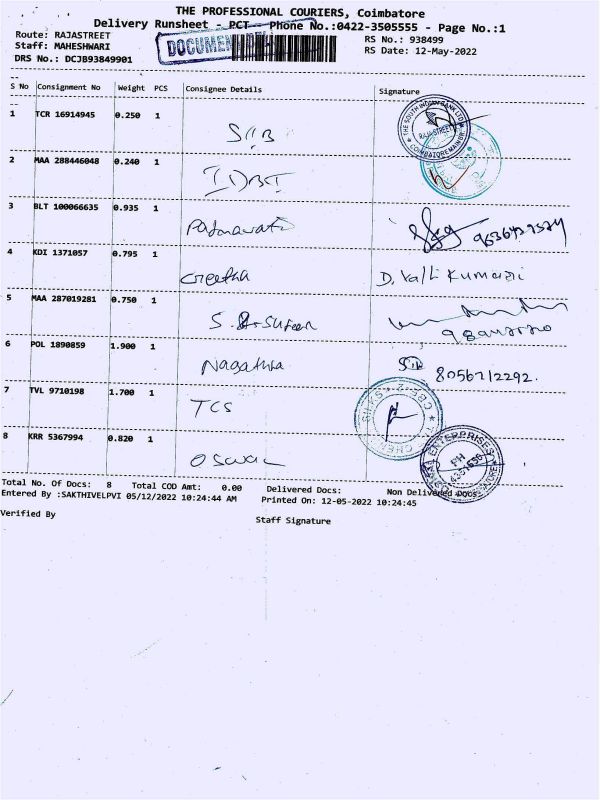 THE PROFESSIONAL COURIERS, Coimbatore
Delivery Runsheet - PCT - Phone No.:0422-3505555 - Page No.:1
Route: RAJASTREET
RS No.: 938499
Staff: MAHESHWARI
RS Date: 12-May-2022
DRS No.: DCJB93849901
DOCUMENT
S No Consignment No Weight PCS Consignee Details Signature
1 TCR 16914945 0.250 1 SIB
THE SOUTH INDIAN BANK LTD RAJA STREET COIMBATORE MAIN BR
2 MAA 288446048 0.240 1 IDBI
3 BLT 100066635 0.935 1 Padmavati
4 KDI 1371057 0.795 1 Geetha D. Valli Kumari
5 MAA 287019281 0.750 1
6 POL 1890859 1.900 1 8056712292.
7 TVL 9710198 1.700 1 TCS
8 KRR 5367994 0.820 1 Oswal
ENTERPRISES
Total No. Of Docs: 8 Total COD Amt: 0.00 Delivered Docs: Non Delivered Docs:
Entered By :SAKTHIVELPVI 05/12/2022 10:24:44 AM Printed On: 12-05-2022 10:24:45
Verified By
Staff Signature